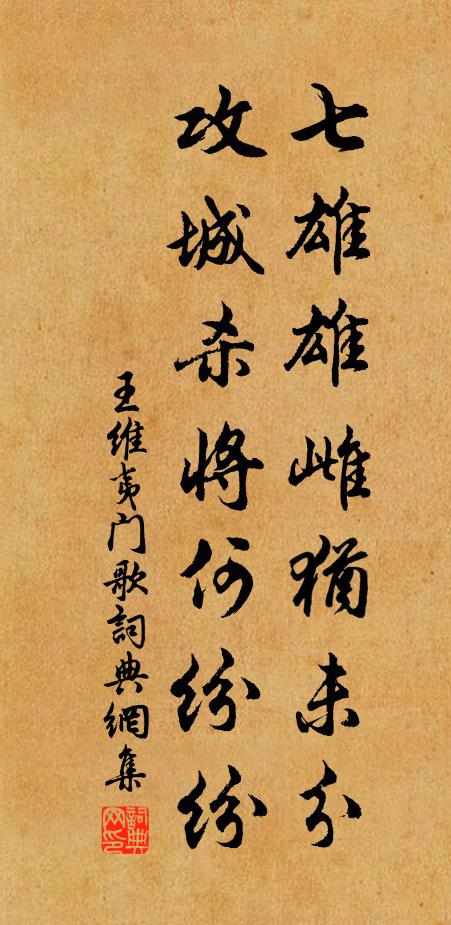 七雄雄雌犹未分
攻城杀将何纷纷
王维夷门歌詞典網集
詞典网印